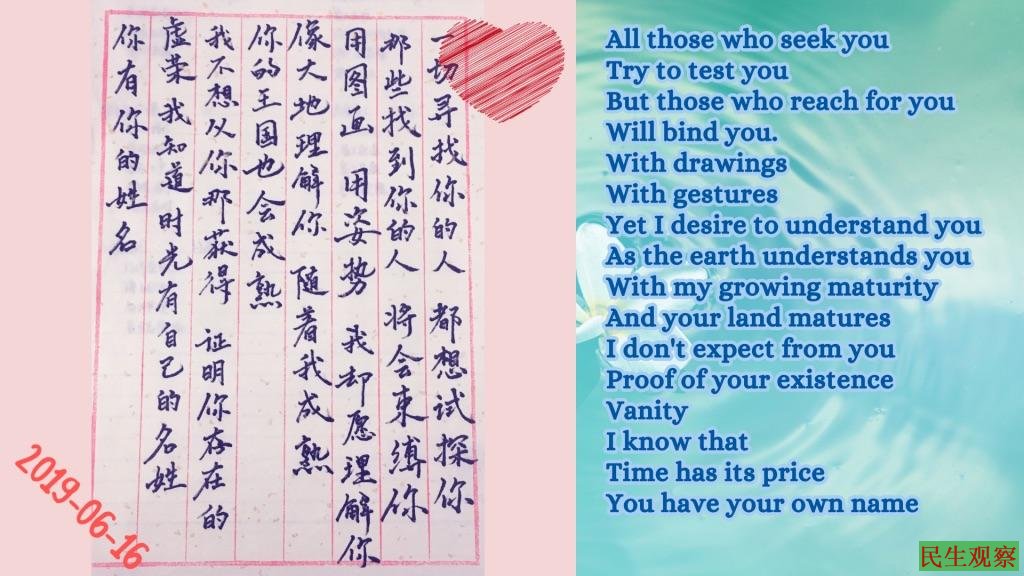 一切寻找你的人 都想试探你
那些找到你的人 将会束缚你
用图画 用姿势 我却愿理解你
像大地理解你 随着我成熟
你的王国也会成熟
我不想从你那获得 证明你存在的
虚荣 我知道 时光有自己的名姓
你有你的姓名
2019-06-16
All those who seek you
Try to test you
But those who reach for you
Will bind you.
With drawings
With gestures
Yet I desire to understand you
As the earth understands you
With my growing maturity
And your land matures
I don't expect from you
Proof of your existence
Vanity
I know that
Time has its price
You have your own name
民生观察